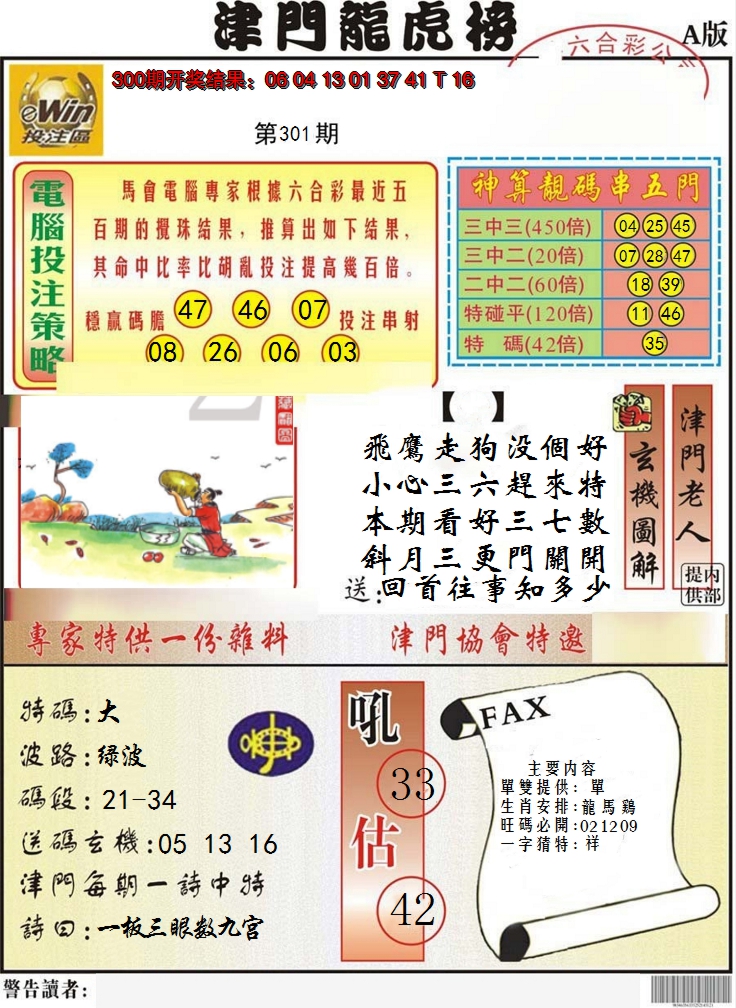 津門龍虎榜
A版
六合彩公
300期开奖结果：06 04 13 01 37 41 T 16
eWin
投注區
第301期
電腦投注策略
馬會電腦專家根據六合彩最近五
百期的攪珠结果，推算出如下结果，
其命中比率比胡亂投注提高幾百倍。
穩赢碼膽 47 46 07 投注串射
08 26 06 03
神算靚碼串五門
三中三(450倍) 04 25 45
三中二(20倍) 07 28 47
二中二(60倍) 18 39
特碰平(120倍) 11 46
特 碼(42倍) 35
【 】
飛鷹走狗没個好
小心三六趕來特
本期看好三七數
斜月三更門關開
送：回首往事知多少
玄機圖解
津門老人
内部提供
專家特供一份雜料
津門協會特邀
特碼：大
波路：绿波
碼段：21-34
送碼玄機：05 13 16
津門每期一詩中特
詩曰：一板三眼数九宫
吼
33
估
42
FAX
主要内容
單雙提供：單
生肖安排：龍馬鷄
旺碼必開：021209
一字猜特：祥
警告讀者：